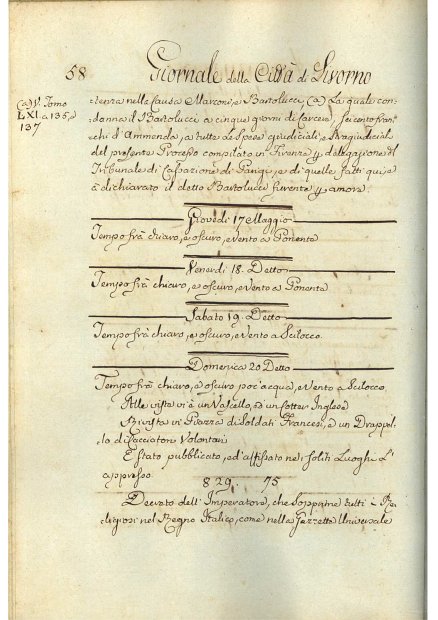 58 Giornale della Città di Livorno
(a) V. Tomo
LXI. a 136, e
137
tenza nella Causa Marconi, e Bartolucci, (a) La quale con-
danna il Bartolucci a cinque giorni di Carcere, seicento fran-
chi d'Ammenda, a tutte le Spese giudiciali, e Stragiudiciali
del presente Processo compilato in Firenze p. delegazione del
Tribunale di Cassazione di Parigi, e di quelle fatti qui, e
à dichiarato il detto Bartolucci furente p. amore.
Giovedi 17 Maggio
Tempo frà chiaro, e oscuro, e vento a Ponente
Venerdi 18. Detto
Tempo frà chiaro, e oscuro, e vento a Ponente
Sabato 19. Detto
Tempo frà chiaro, e oscuro, e vento a Scilocco.
Domenica 20 Detto
Tempo frà chiaro, e oscuro poc'acqua, e vento a Scilocco
Alle vista vi è un Vascello, ed un Cotter Inglese
Rivista in Piazza di Soldati Francesi, e un Drappel-
lo di Cacciatori Volontari
E stato pubblicato, ed affissato nei soliti Luoghi L'
appresso
8 29 75
Decreto dell'Imperatore, che Sopprime tutti i Re-
ligiosi nel Regno Italico, come nella Gazzetta Universale